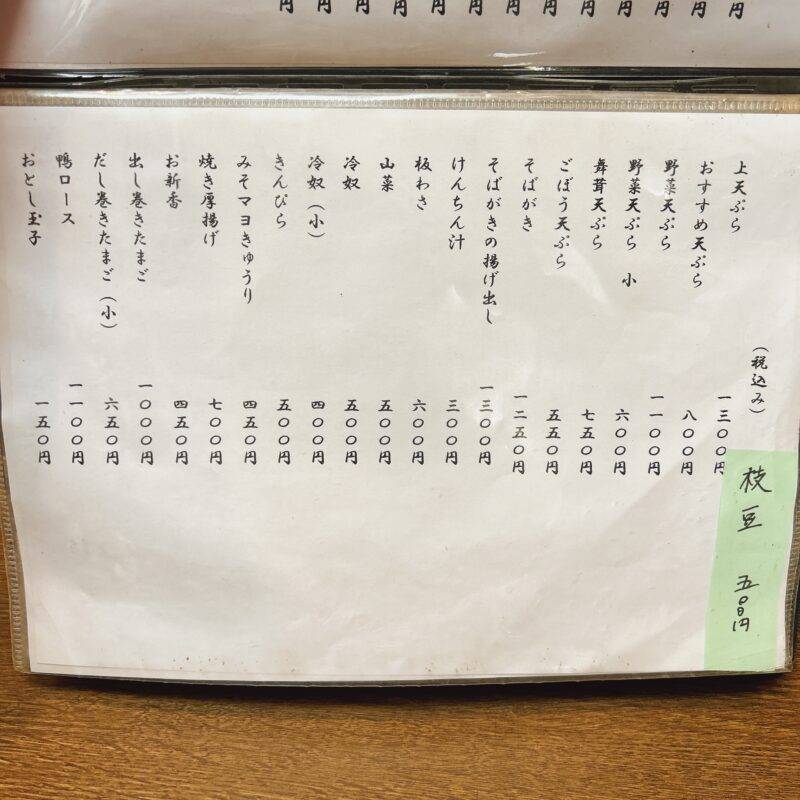 円 円 円 円 円 円 円 円 円 円 円 円 円
（税込み）
上天ぷら 一三〇〇円
おすすめ天ぷら 八〇〇円
野菜天ぷら 一一〇〇円
野菜天ぷら 小 六〇〇円
舞茸天ぷら 七五〇円
ごぼう天ぷら 五五〇円
そばがき 一二五〇円
そばがきの揚げ出し 一三〇〇円
けんちん汁 三〇〇円
板わさ 六〇〇円
山菜 五〇〇円
冷奴 五〇〇円
冷奴（小） 四〇〇円
きんぴら 五〇〇円
みそマヨきゅうり 四五〇円
焼き厚揚げ 七〇〇円
お新香 四五〇円
出し巻きたまご 一〇〇〇円
だし巻きたまご（小） 六五〇円
鴨ロース 一一〇〇円
おとし玉子 一五〇円
枝豆 五〇〇円